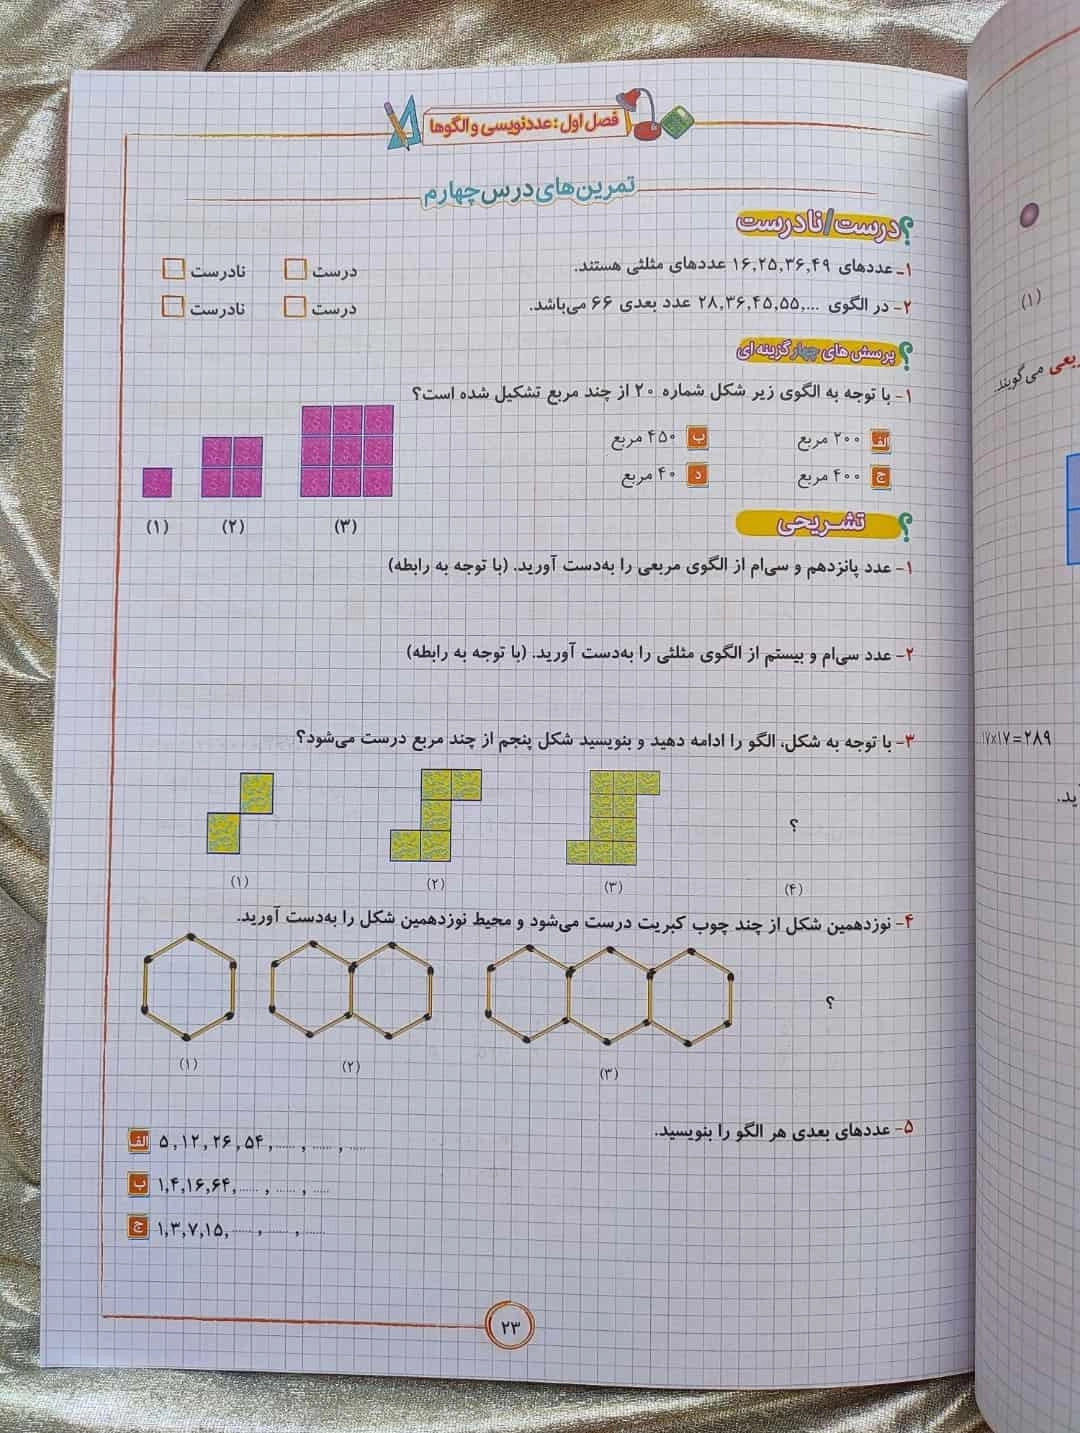 فصل اول: عددنویسی و الگوها
تمرین‌های درس چهارم
درست/نادرست
۱- عددهای ۱۶,۲۵,۳۶,۴۹ عددهای مثلثی هستند. درست نادرست
۲- در الگوی ...,۲۸,۳۶,۴۵,۵۵ عدد بعدی ۶۶ می‌باشد. درست نادرست
پرسش های چهارگزینه ای
۱- با توجه به الگوی زیر شکل شماره ۲۰ از چند مربع تشکیل شده است؟
الف ۲۰۰ مربع ب ۴۵۰ مربع
ج ۴۰۰ مربع د ۴۰ مربع
(۱) (۲) (۳)
تشریحی
۱- عدد پانزدهم و سی‌ام از الگوی مربعی را به‌دست آورید. (با توجه به رابطه)
۲- عدد سی‌ام و بیستم از الگوی مثلثی را به‌دست آورید. (با توجه به رابطه)
۳- با توجه به شکل، الگو را ادامه دهید و بنویسید شکل پنجم از چند مربع درست می‌شود؟
؟
(۱) (۲) (۳) (۴)
۴- نوزدهمین شکل از چند چوب کبریت درست می‌شود و محیط نوزدهمین شکل را به‌دست آورید.
؟
(۱) (۲) (۳)
۵- عددهای بعدی هر الگو را بنویسید.
الف ۵,۱۲,۲۶,۵۴,......,......,......
ب ۱,۴,۱۶,۶۴,......,......,......
ج ۱,۳,۷,۱۵,......,......,......
۲۳
(۱)
بعی می‌گویند.
۱۷×۱۷=۲۸۹
ید.